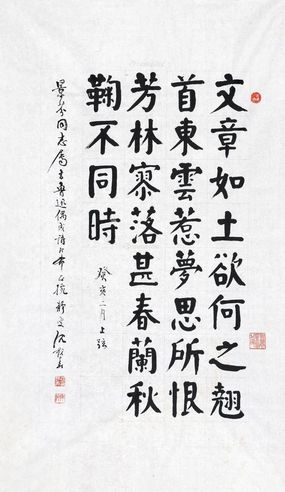 文章如土欲何之翹
首東雲惹夢思所恨
芳林寥落甚春蘭秋
鞠不同時
癸亥二月上弦
同志屬書魯迅偶成詩 沈